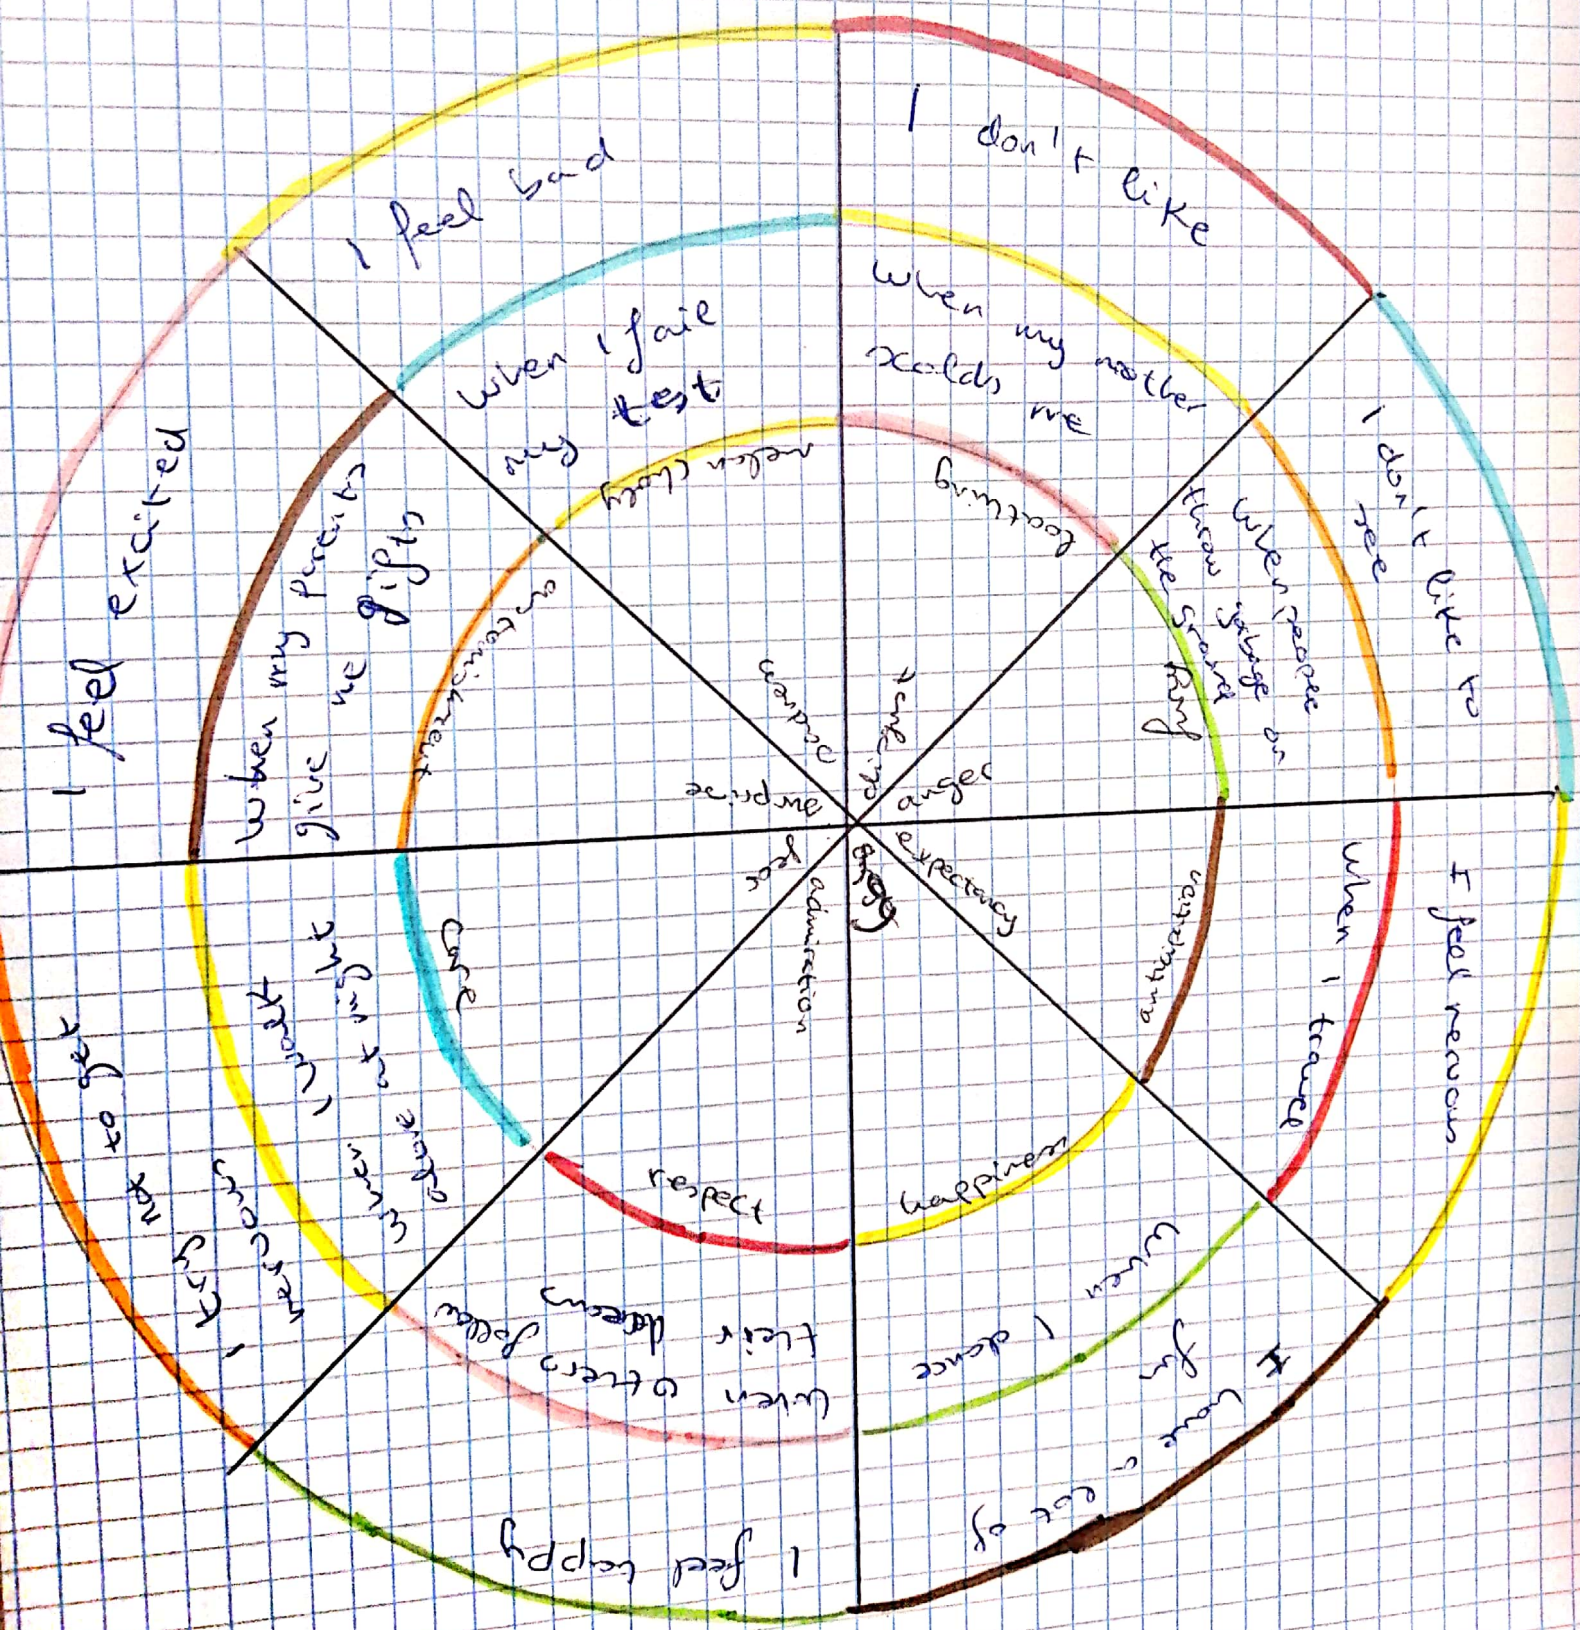 I don't like
when my mother
scolds me
loathing
I don't like to
see
when people
throw gabage on
the ground
fury
anger
I feel nervous
when I travel
anticipation
expectancy
I have a lot of
fun
when I dance
happiness
I feel happy
when others follow
their dreams
respect
admiration
I try not to get
nervous
when I walk
alone at night
fear
I feel excited
when my parents
give me gifts
astonishment
surprise
I feel bad
when I fail
my test
melancholy